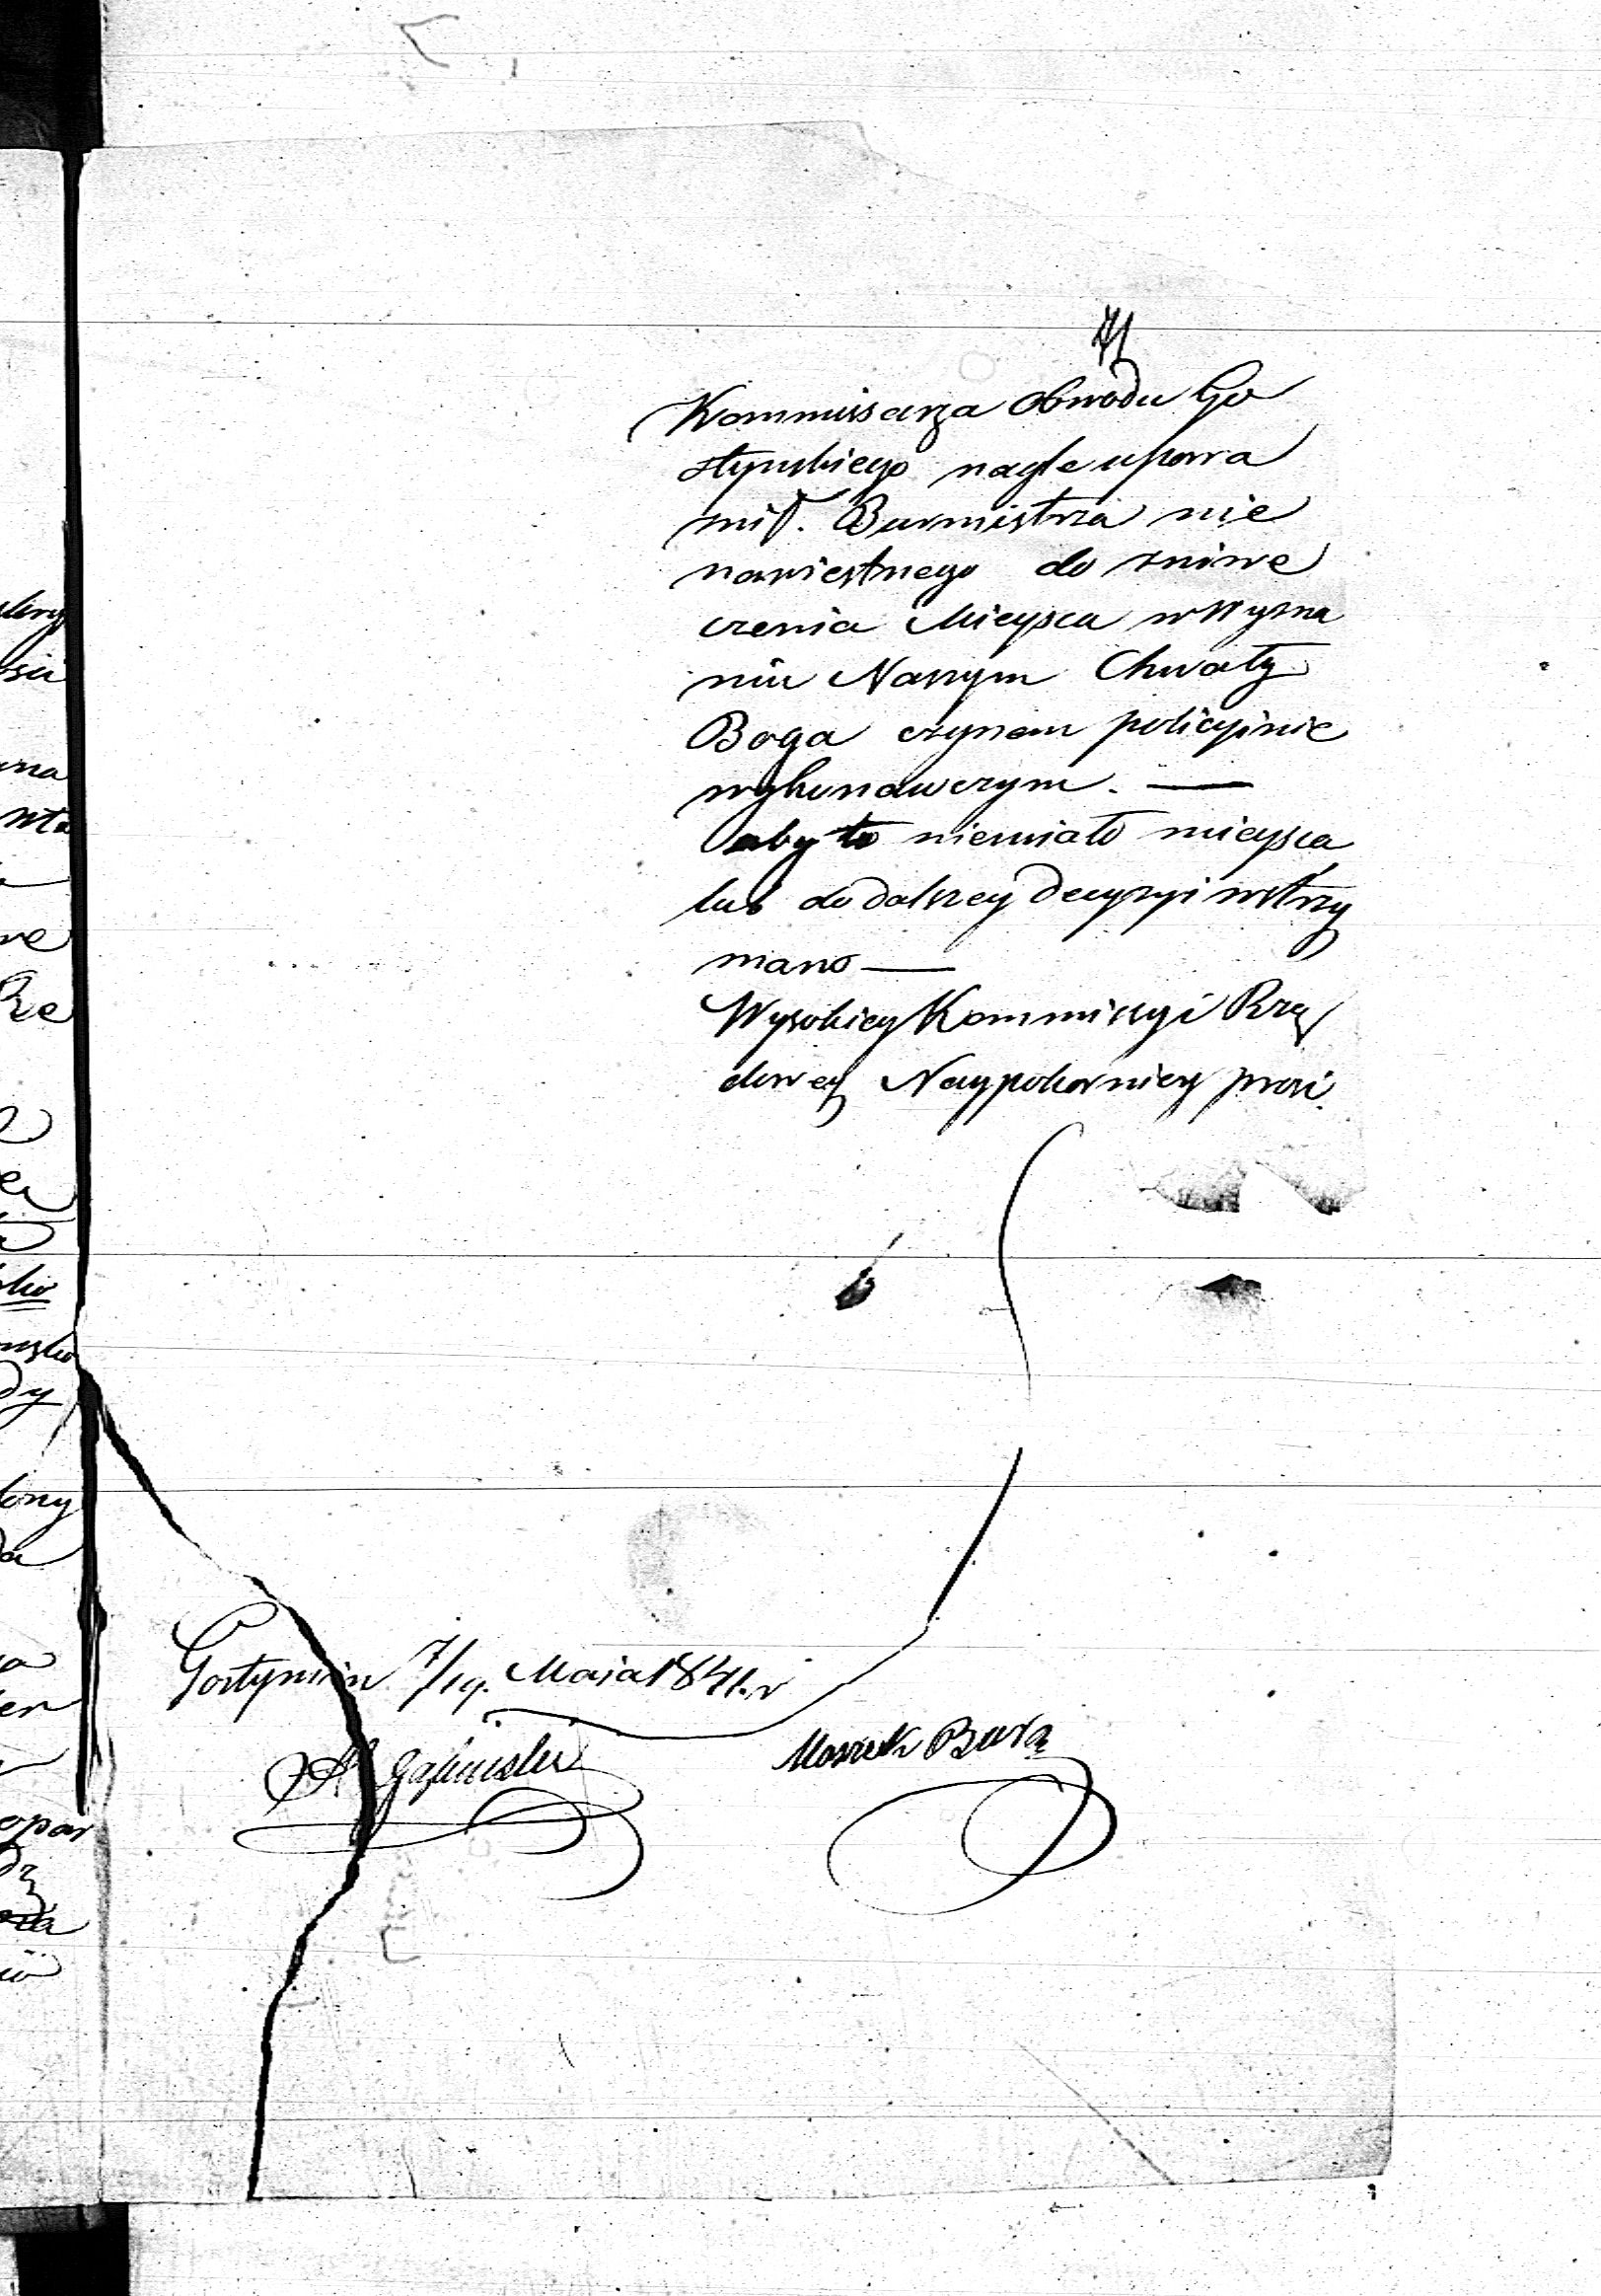 71
Kommissarza Obwodu Go
styńskiego nagle upowa
żnił. Burmistrza nie
nawistnego do zniwe
czenia Mieysca w Wyzna
niu Naszym Chwały
Boga czynem policyinie
wykonawczym. —
aby to niemiało mieysca
lub do dalszey decyzyi wstrzy
mano —
Wysokiey Kommissyi Rzą
dowey Naypokorniey prosi.
Gostynin 7/19. Maia 1841. r
Moszek Bura